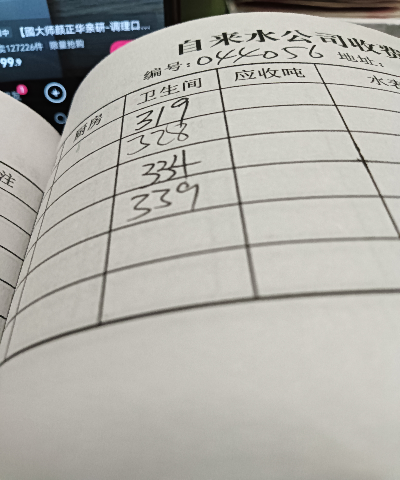 【国大师颜正华亲研-调理口...
卖127226件 限量抢购
99.9
自来水公司收费
编号:044056 地址:
厨房 卫生间 应收吨
319
328
334
339
注